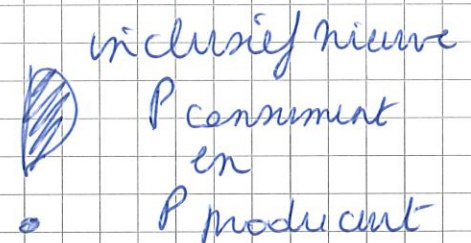 inclusief nieuwe
P consument
en
P producent